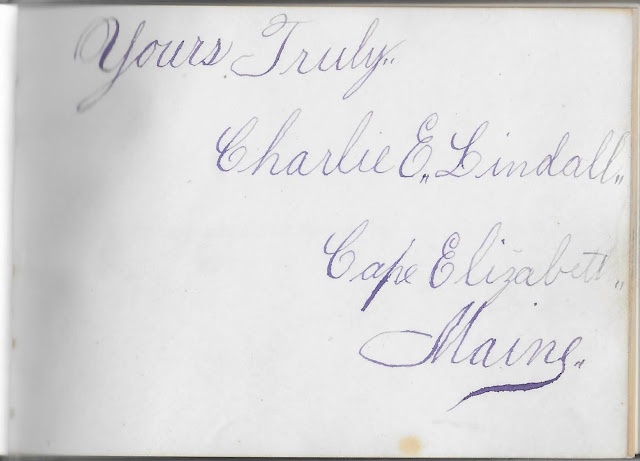 Yours Truly"
Charlie E" Lindall"
Cape Elizabeth"
Maine"